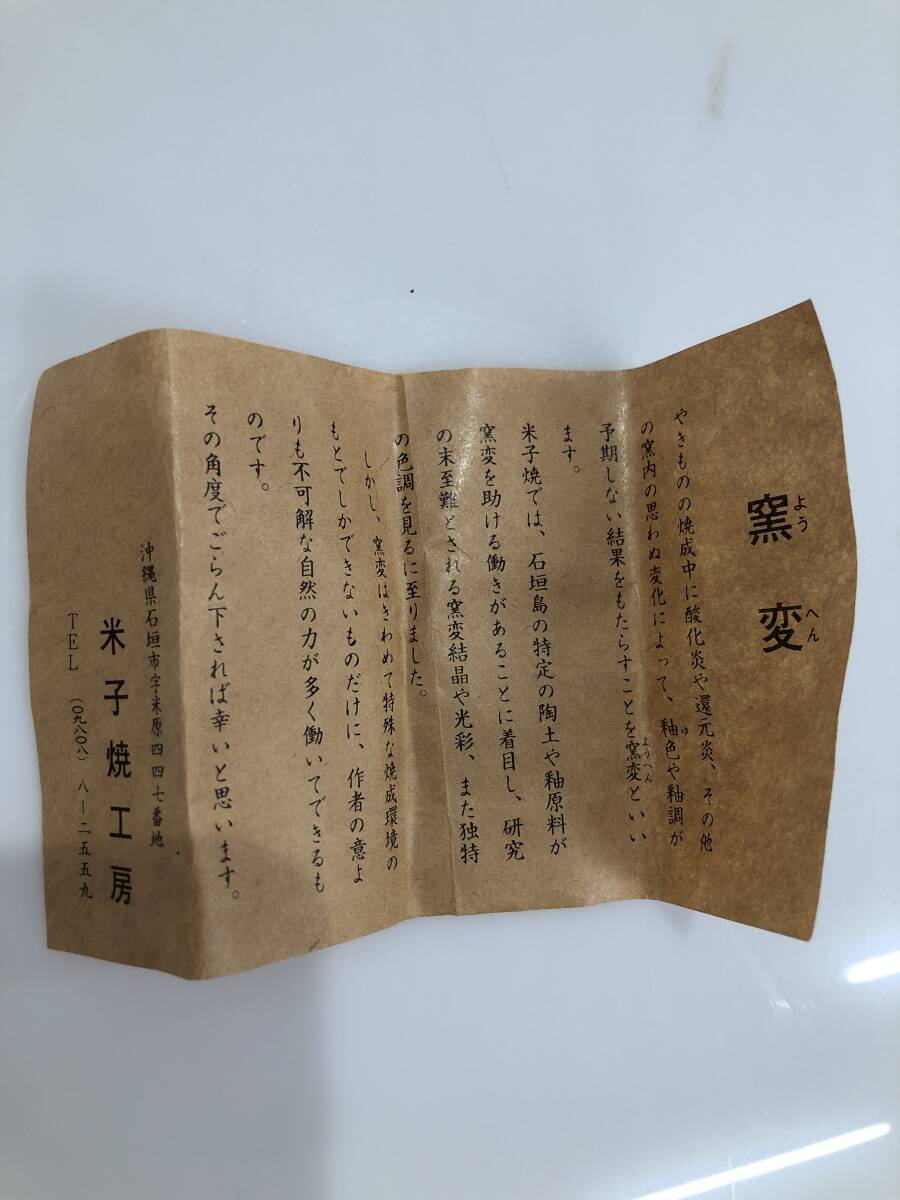 窯変
よう へん
やきものの焼成中に酸化炎や還元炎、その他
の窯内の思わぬ変化によって、釉色や釉調が
ゆ
予期しない結果をもたらすことを窯変といい
ようへん
ます。
米子焼では、石垣島の特定の陶土や釉原料が
窯変を助ける働きがあることに着目し、研究
の末至難とされる窯変結晶や光彩、また独特
の色調を見るに至りました。
しかし、窯変はきわめて特殊な焼成環境の
もとでしかできないものだけに、作者の意よ
りも不可解な自然の力が多く働いてできるも
のです。
その角度でごらん下されば幸いと思います。
沖縄県石垣市字米原四四七番地
米子焼工房
TEL (〇九八〇八)八―二五五九